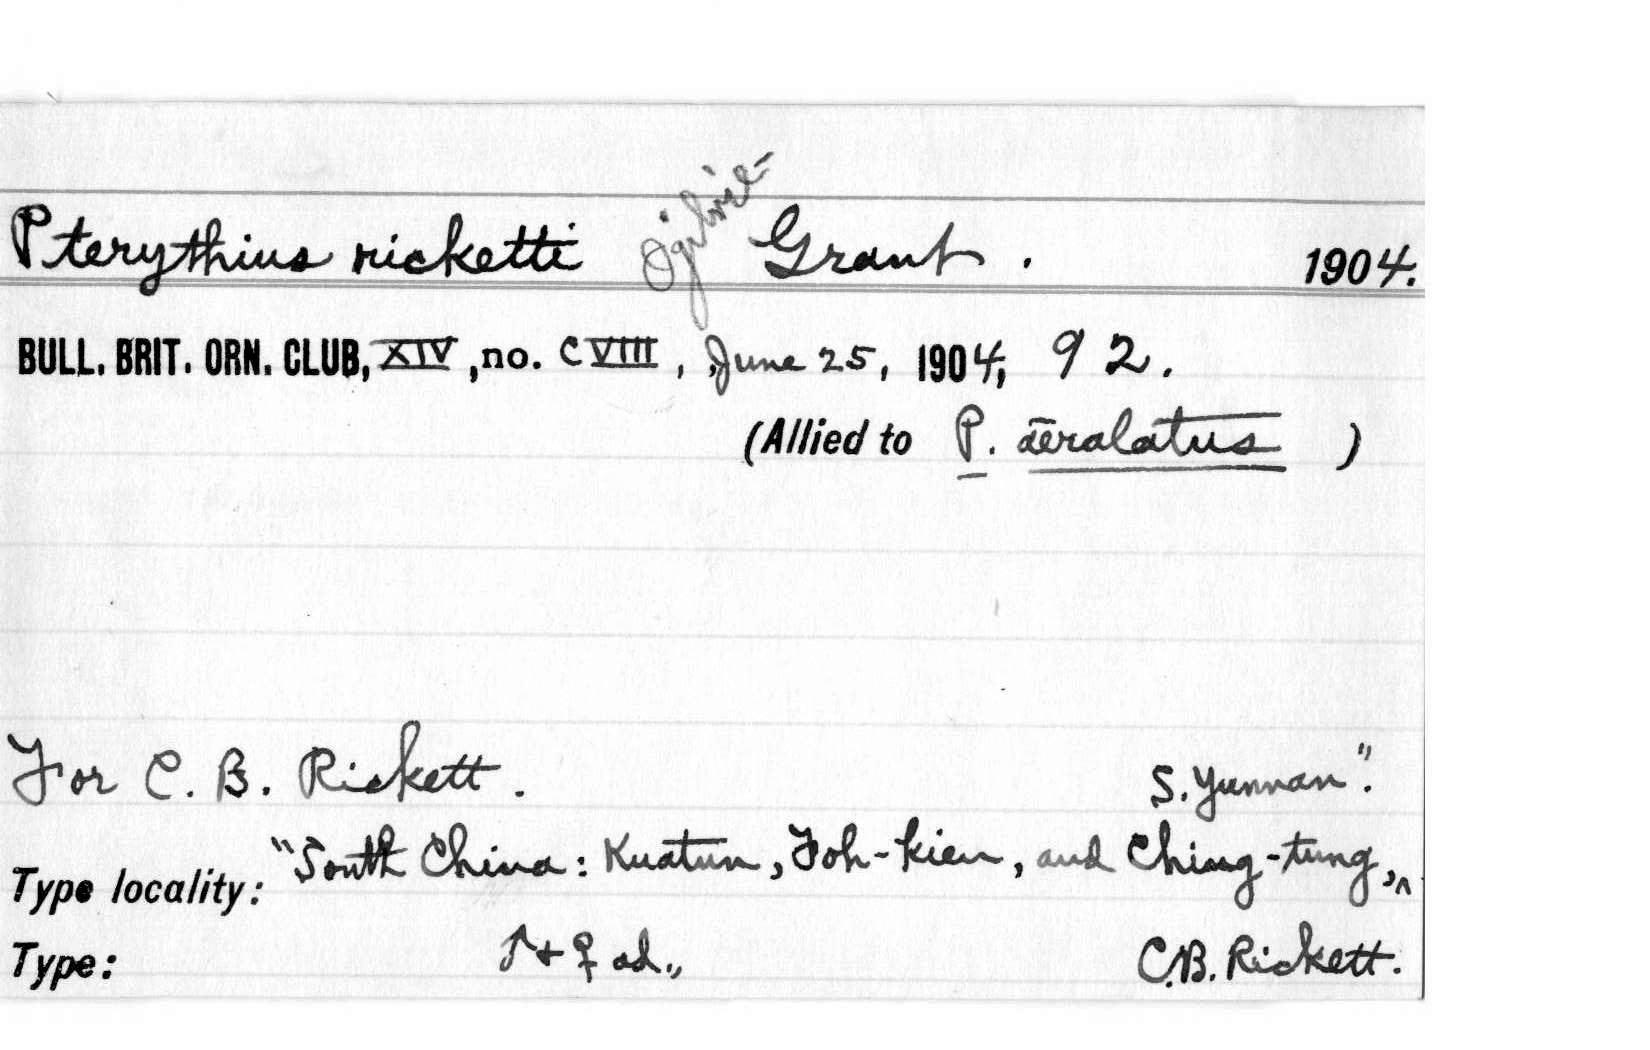 Pterythius ricketti Ogilvie- Grant. 1904.
BULL. BRIT. ORN. CLUB, XIV, no. CVIII, June 25, 1904, 92.
(Allied to P. aeralatus)
For C. B. Rickett.
S. Yunnan".
Type locality: "South China: Kuatun, Foh-kien, and Ching-tung, ^
Type: ♂ + ♀ ad., C.B. Rickett.